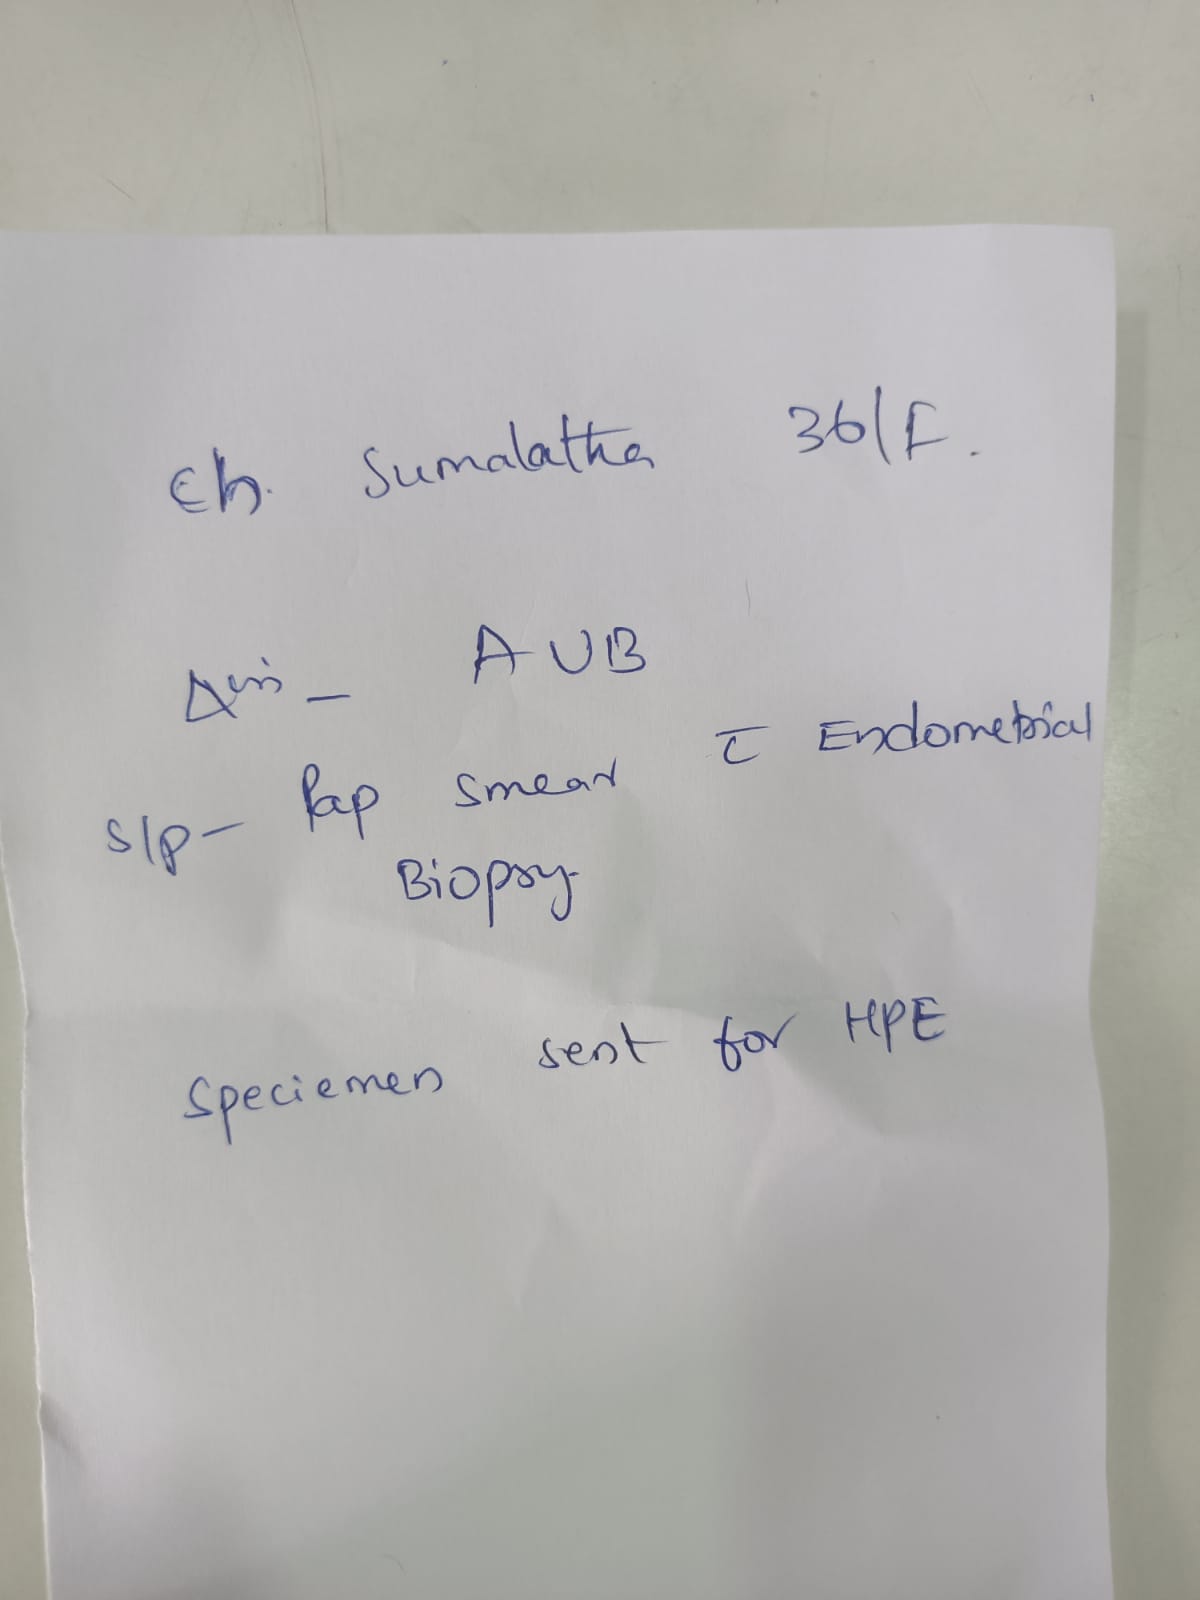 Ch. Sumalatha 36/F.
Δsis - AUB
S/P - Pap smear c̄ Endometrial
Biopsy
Speciemen sent for HPE